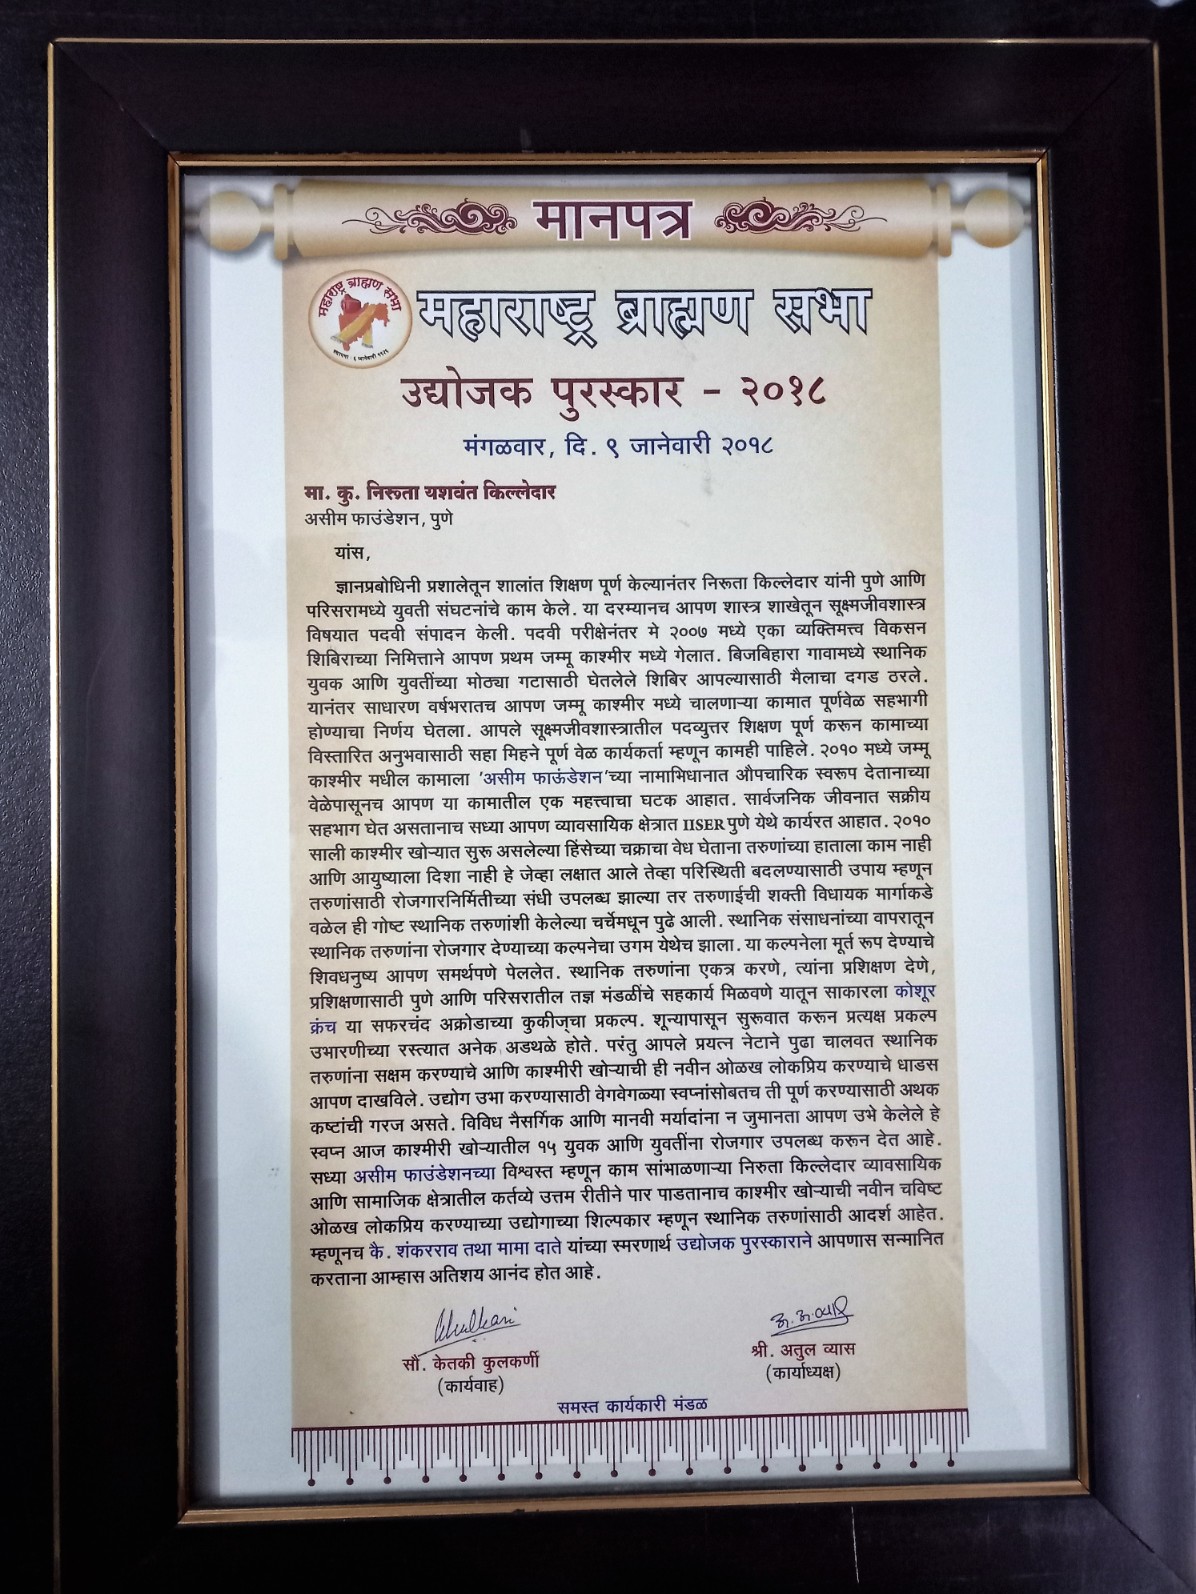 मानपत्र
महाराष्ट्र ब्राह्मण सभा
महाराष्ट्र ब्राह्मण सभा
उद्योजक पुरस्कार - २०१८
मंगळवार, दि. ९ जानेवारी २०१८
मा. कु. निरूता यशवंत किल्लेदार
असीम फाउंडेशन, पुणे
यांस,
ज्ञानप्रबोधिनी प्रशालेतून शालांत शिक्षण पूर्ण केल्यानंतर निरूता किल्लेदार यांनी पुणे आणि
परिसरामध्ये युवती संघटनांचे काम केले. या दरम्यानच आपण शास्त्र शाखेतून सूक्ष्मजीवशास्त्र
विषयात पदवी संपादन केली. पदवी परीक्षेनंतर मे २००७ मध्ये एका व्यक्तिमत्त्व विकसन
शिबिराच्या निमित्ताने आपण प्रथम जम्मू काश्मीर मध्ये गेलात. बिजबिहारा गावामध्ये स्थानिक
युवक आणि युवतींच्या मोठ्या गटासाठी घेतलेले शिबिर आपल्यासाठी मैलाचा दगड ठरले.
यानंतर साधारण वर्षभरातच आपण जम्मू काश्मीर मध्ये चालणाऱ्या कामात पूर्णवेळ सहभागी
होण्याचा निर्णय घेतला. आपले सूक्ष्मजीवशास्त्रातील पदव्युत्तर शिक्षण पूर्ण करून कामाच्या
विस्तारित अनुभवासाठी सहा मिहने पूर्ण वेळ कार्यकर्ता म्हणून कामही पाहिले. २०१० मध्ये जम्मू
काश्मीर मधील कामाला 'असीम फाऊंडेशन'च्या नामाभिधानात औपचारिक स्वरूप देतानाच्या
वेळेपासूनच आपण या कामातील एक महत्त्वाचा घटक आहात. सार्वजनिक जीवनात सक्रीय
सहभाग घेत असतानाच सध्या आपण व्यावसायिक क्षेत्रात IISER पुणे येथे कार्यरत आहात. २०१०
साली काश्मीर खोऱ्यात सुरू असलेल्या हिंसेच्या चक्राचा वेध घेताना तरुणांच्या हाताला काम नाही
आणि आयुष्याला दिशा नाही हे जेव्हा लक्षात आले तेव्हा परिस्थिती बदलण्यासाठी उपाय म्हणून
तरुणांसाठी रोजगारनिर्मितीच्या संधी उपलब्ध झाल्या तर तरुणाईची शक्ती विधायक मार्गाकडे
वळेल ही गोष्ट स्थानिक तरुणांशी केलेल्या चर्चेमधून पुढे आली. स्थानिक संसाधनांच्या वापरातून
स्थानिक तरुणांना रोजगार देण्याच्या कल्पनेचा उगम येथेच झाला. या कल्पनेला मूर्त रूप देण्याचे
शिवधनुष्य आपण समर्थपणे पेललेत. स्थानिक तरुणांना एकत्र करणे, त्यांना प्रशिक्षण देणे,
प्रशिक्षणासाठी पुणे आणि परिसरातील तज्ञ मंडळींचे सहकार्य मिळवणे यातून साकारला कोशूर
क्रंच या सफरचंद अक्रोडाच्या कुकीज्‌चा प्रकल्प. शून्यापासून सुरूवात करून प्रत्यक्ष प्रकल्प
उभारणीच्या रस्त्यात अनेक अडथळे होते. परंतु आपले प्रयत्न नेटाने पुढा चालवत स्थानिक
तरुणांना सक्षम करण्याचे आणि काश्मीरी खोऱ्याची ही नवीन ओळख लोकप्रिय करण्याचे धाडस
आपण दाखविले. उद्योग उभा करण्यासाठी वेगवेगळ्या स्वप्नांसोबतच ती पूर्ण करण्यासाठी अथक
कष्टांची गरज असते. विविध नैसर्गिक आणि मानवी मर्यादांना न जुमानता आपण उभे केलेले हे
स्वप्न आज काश्मीरी खोऱ्यातील १५ युवक आणि युवतींना रोजगार उपलब्ध करून देत आहे.
सध्या असीम फाउंडेशनच्या विश्वस्त म्हणून काम सांभाळणाऱ्या निरुता किल्लेदार व्यावसायिक
आणि सामाजिक क्षेत्रातील कर्तव्ये उत्तम रीतीने पार पाडतानाच काश्मीर खोऱ्याची नवीन चविष्ट
ओळख लोकप्रिय करण्याच्या उद्योगाच्या शिल्पकार म्हणून स्थानिक तरुणांसाठी आदर्श आहेत.
म्हणूनच कै. शंकरराव तथा मामा दाते यांच्या स्मरणार्थ उद्योजक पुरस्काराने आपणास सन्मानित
करताना आम्हास अतिशय आनंद होत आहे.
सौ. केतकी कुलकर्णी
(कार्यवाह)
श्री. अतुल व्यास
(कार्याध्यक्ष)
समस्त कार्यकारी मंडळ